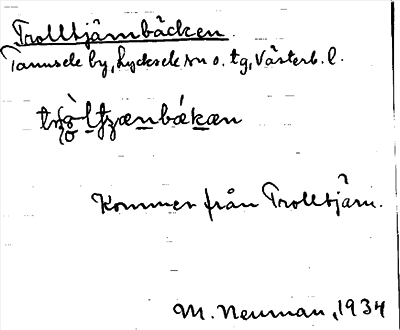 Trolltjärnbäcken.
Tannsele by, Lycksele sn o. tg, Västerb. l.
Kommer från Trolltjärn.
M. Neuman, 1934